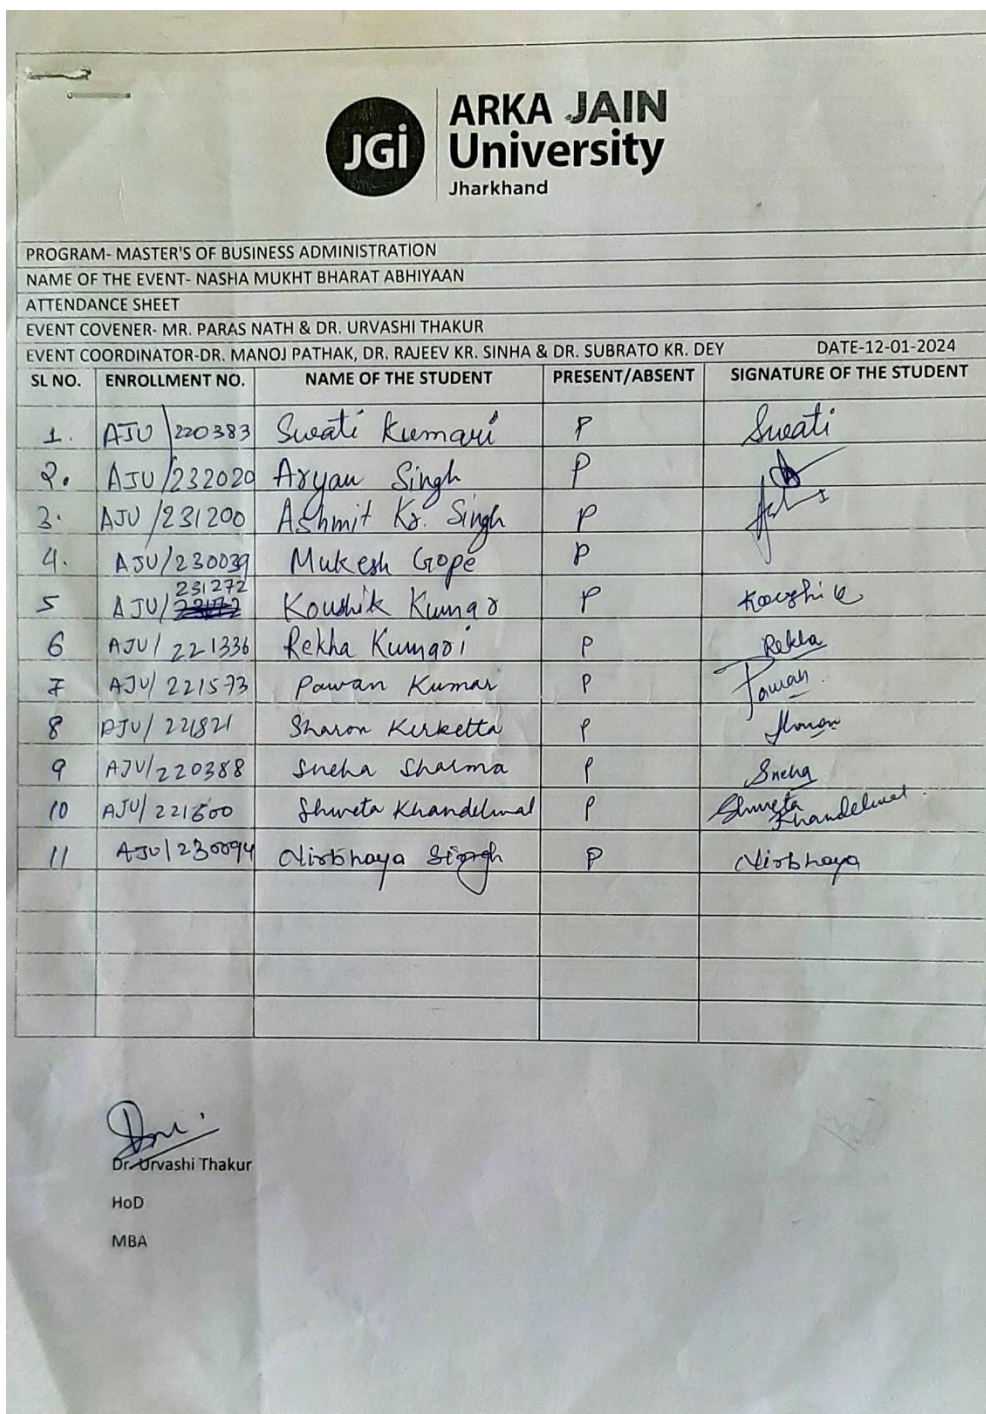 JGi
ARKA JAIN
University
Jharkhand
PROGRAM- MASTER'S OF BUSINESS ADMINISTRATION
NAME OF THE EVENT- NASHA MUKHT BHARAT ABHIYAAN
ATTENDANCE SHEET
EVENT COVENER- MR. PARAS NATH & DR. URVASHI THAKUR
EVENT COORDINATOR-DR. MANOJ PATHAK, DR. RAJEEV KR. SINHA & DR. SUBRATO KR. DEY DATE-12-01-2024
SL NO. ENROLLMENT NO. NAME OF THE STUDENT PRESENT/ABSENT SIGNATURE OF THE STUDENT
1. AJU/220383 Swati Kumari P Swati
2. AJU/232020 Aryan Singh P
3. AJU/231200 Ashmit Kr. Singh P
4. AJU/230039 Mukesh Gope P
5 AJU/231272 Koushik Kumar P Koushik
6 AJU/221336 Rekha Kumari P Rekha
7 AJU/221573 Pawan Kumar P Pawan
8 AJU/221821 Sharon Kerketta P
9 AJU/220388 Sneha Sharma P Sneha
10 AJU/221600 Shweta Khandelwal P Shweta Khandelwal
11 AJU/230094 Nirbhaya Singh P Nirbhaya
Dr. Urvashi Thakur
HoD
MBA